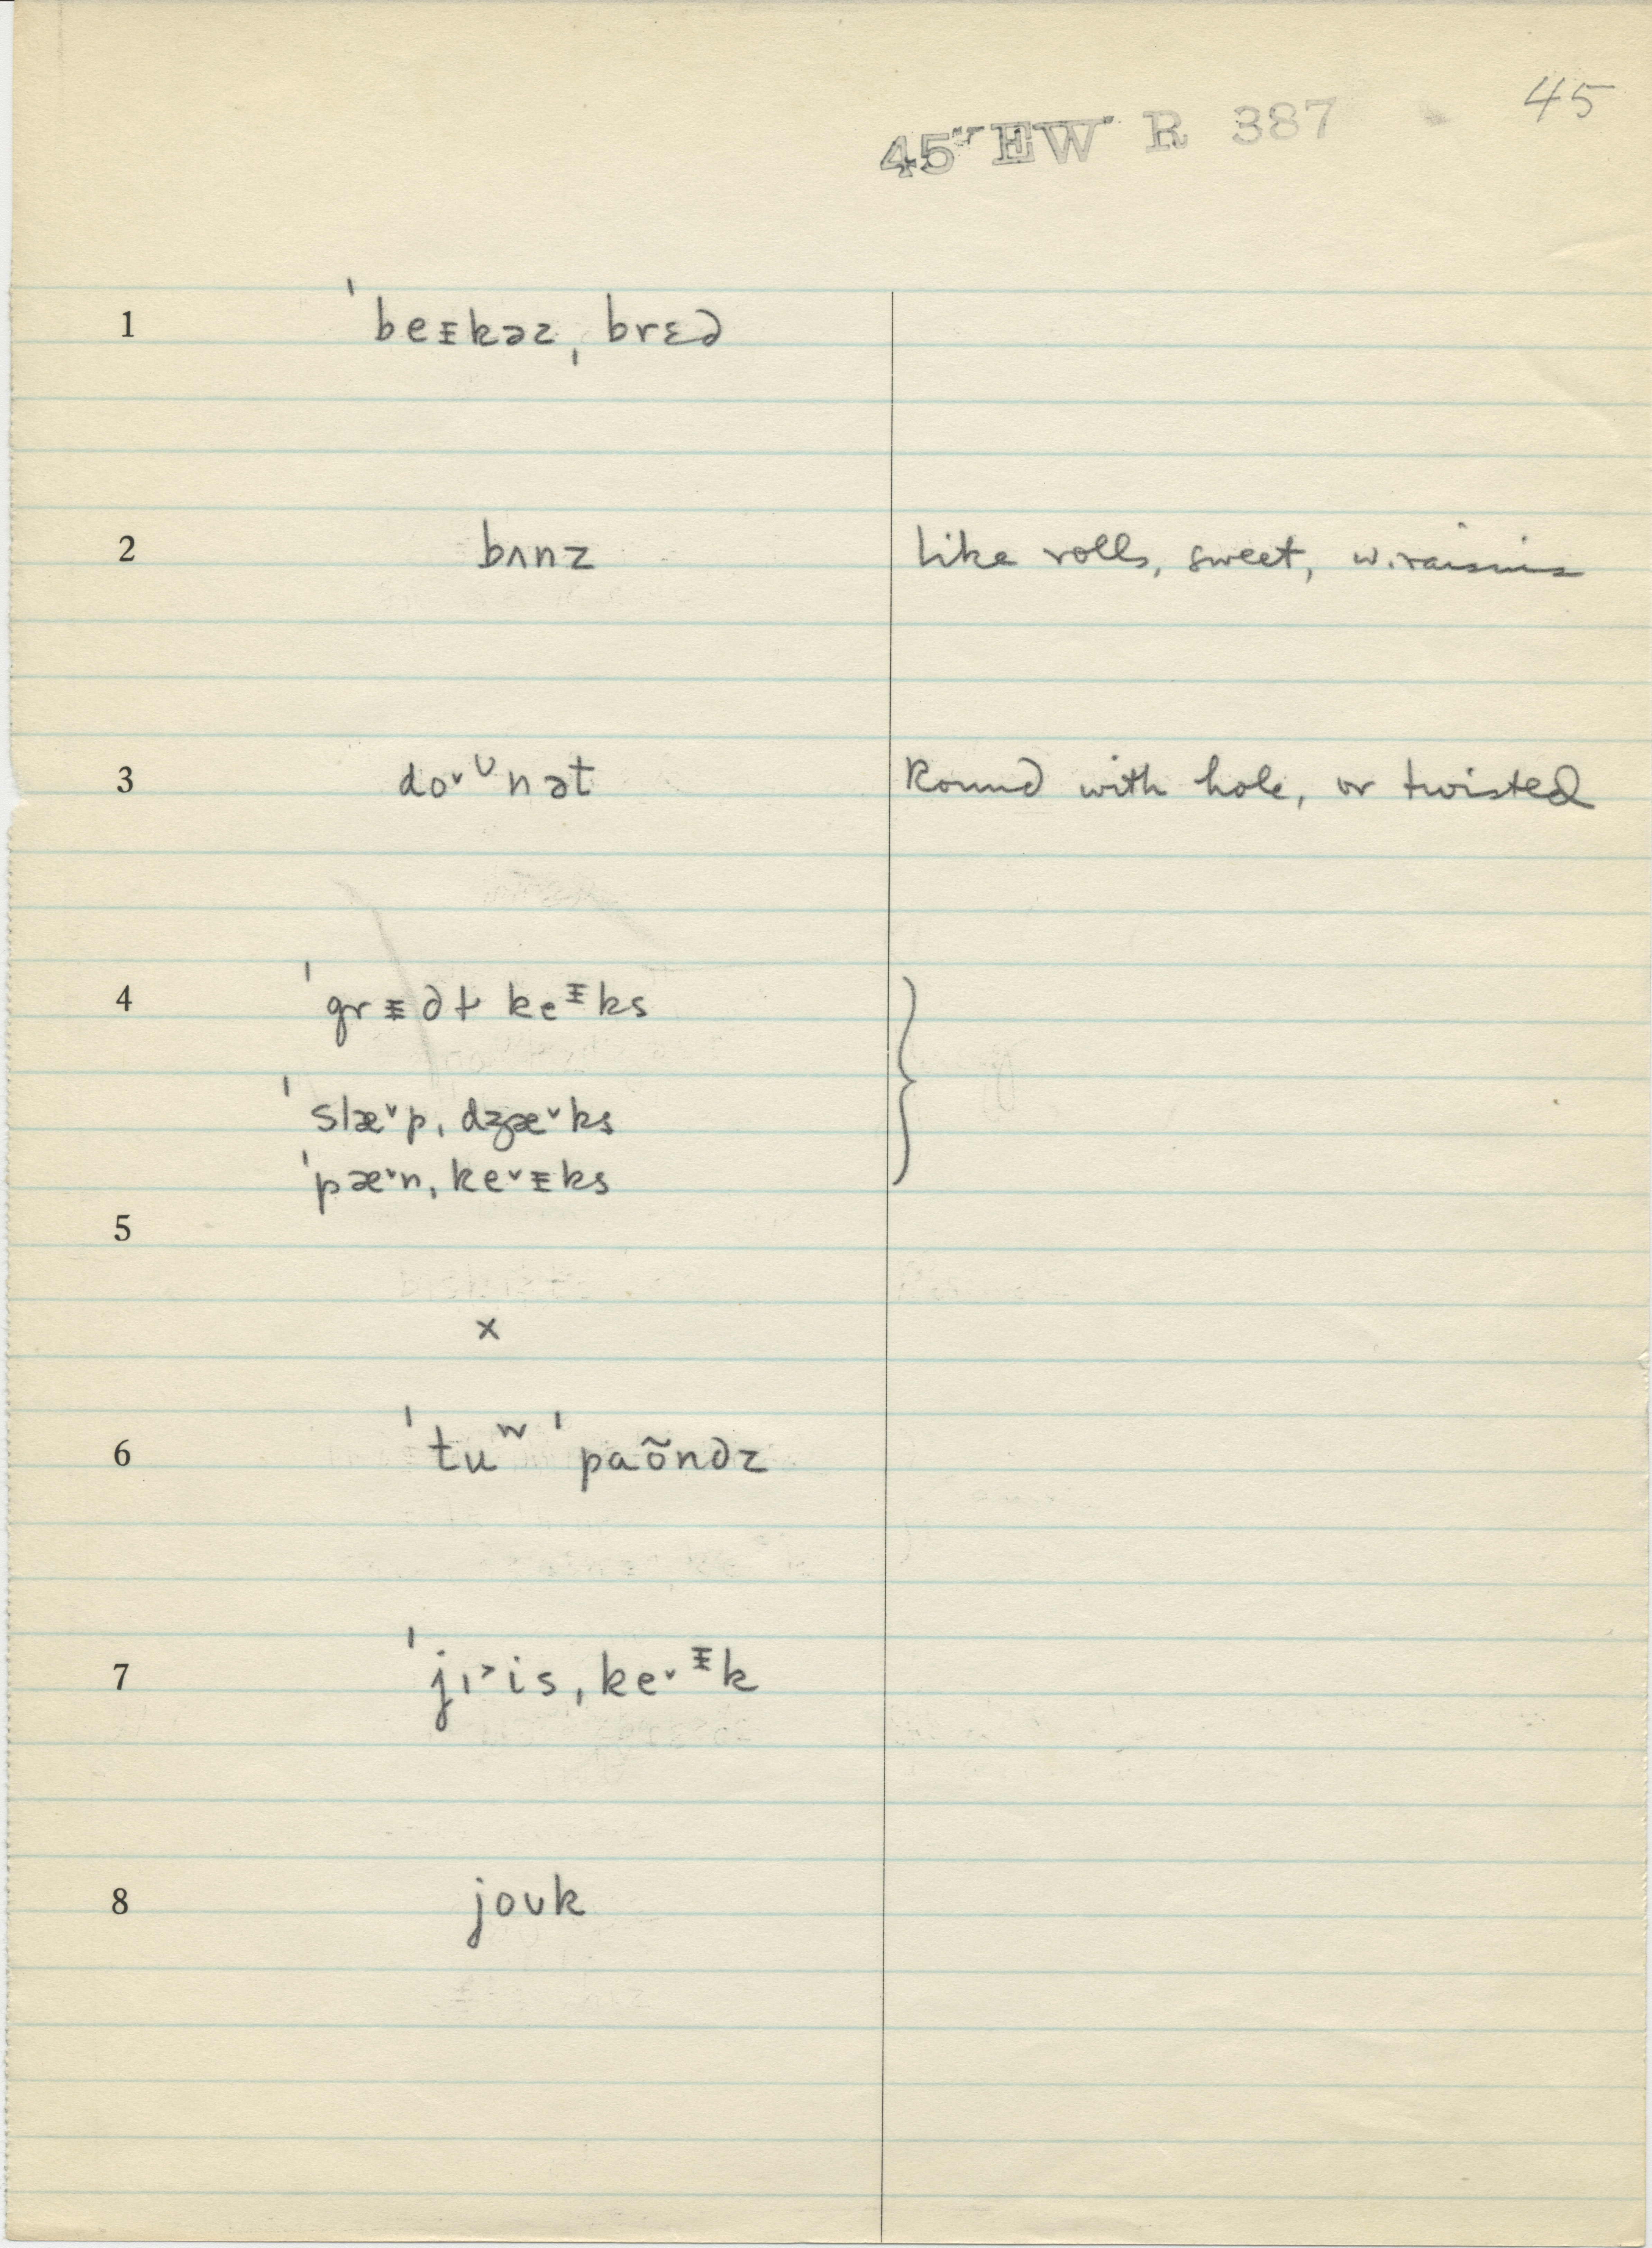 45
45 EW R 387
1 ˈbeᵻkəz ˌbrɛd
2 bʌnz Like rolls, sweet, w. raisins
3 do˅ᶷnət Round with hole, or twisted
4 ˈgrᵻdɫ keᵻks
ˈslæ˅pˌdʒæ˅ks
ˈpæ˅nˌke˅ᵻks
5
x
6 ˈtuʷ ˈpaõndz
7 ˈjɪ˃isˌke˅ᵻk
8 joʊk